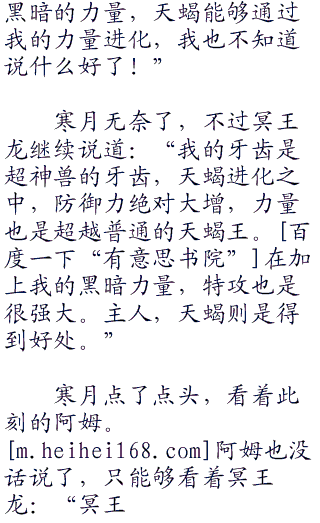 黑暗的力量，天蝎能够通过
我的力量进化，我也不知道
说什么好了！”
寒月无奈了，不过冥王
龙继续说道：“我的牙齿是
超神兽的牙齿，天蝎进化之
中，防御力绝对大增，力量
也是超越普通的天蝎王。[百
度一下“有意思书院”]在加
上我的黑暗力量，特攻也是
很强大。主人，天蝎则是得
到好处。”
寒月点了点头，看着此
刻的阿姆。
[m.heihei168.com]阿姆也没
话说了，只能够看着冥王
龙：“冥王